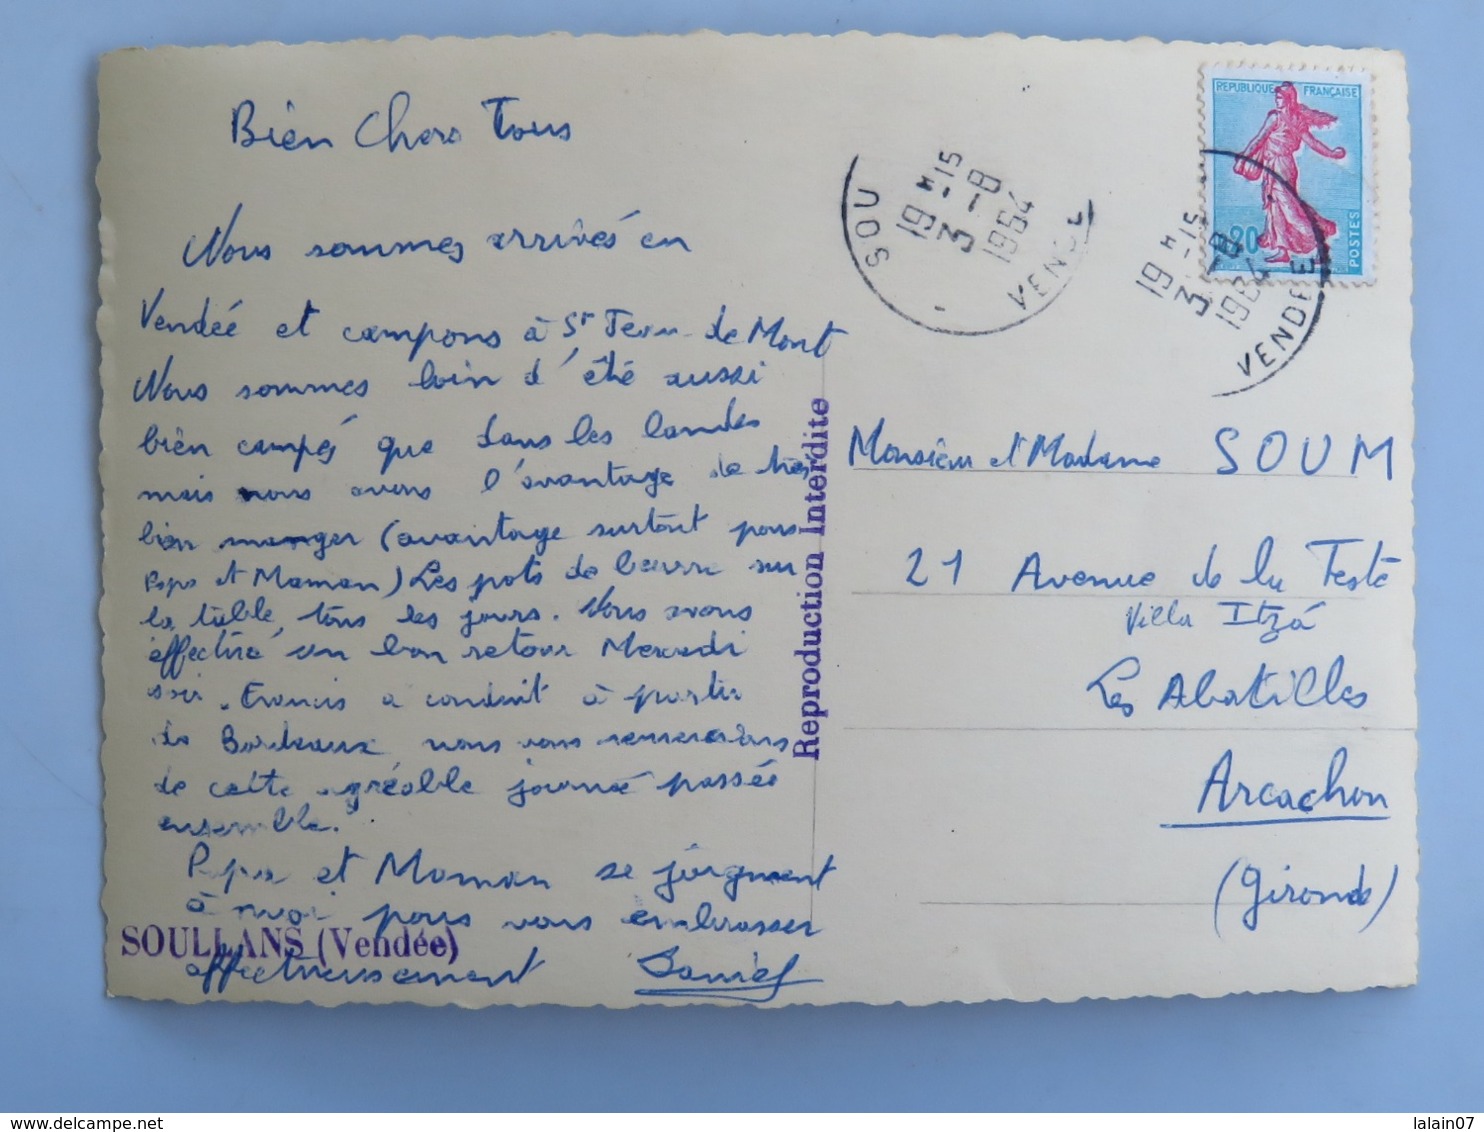 Bien Chers Tous
Nous sommes arrivés en
Vendée et campons à St Jean-de Mont
Nous sommes loin d'être aussi
bien campés que dans les landes
mais nous avons l'avantage de très
bien manger (avantage surtout pour
Papa et Maman) Les pots de beurre sur
la table, tous les jours. Nous avons
effectué un bon retour Mercredi
soir. Francis a conduit à partir
de Bordeaux nous vous remercions
de cette agréable journée passée
ensemble.
Papa et Maman se joignent
à moi pour vous embrasser
affectueusement Daniel
SOULLANS (Vendée)
Reproduction Interdite
SOU
19 H 15
3 - 8
1964
VENDÉE
REPUBLIQUE FRANÇAISE
0,20
POSTES
19 H 15
3 - 8
1964
VENDEE
Monsieur et Madame SOUM
21 Avenue de la Teste
Villa Itzá
Les Abatilles
Arcachon
(Gironde)
delcampe.net
lalain07